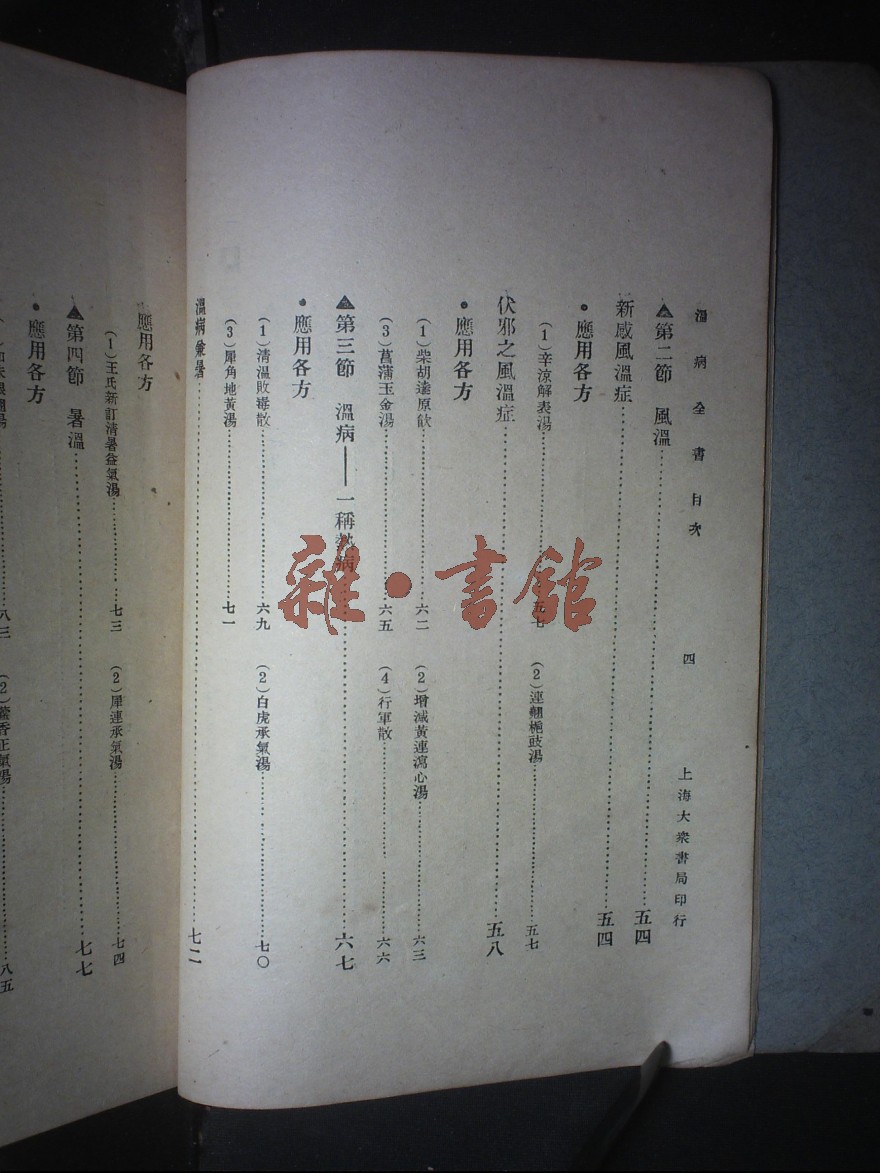 溫病全書目次 四 上海大衆書局印行
▲第二節 風溫……五四
新感風溫症……五四
•應用各方
(1)辛涼解表湯……五七 (2)連翹梔豉湯……五七
伏邪之風溫症……五八
•應用各方
(1)柴胡達原飲……六二 (2)增減黃連瀉心湯……六三
(3)菖蒲玉金湯……六五 (4)行軍散……六六
▲第三節 溫病——一稱熱病……六七
•應用各方
(1)清溫敗毒散……六九 (2)白虎承氣湯……七〇
(3)犀角地黃湯……七一
溫病兼暑……七二
應用各方
(1)王氏新訂清暑益氣湯……七三 (2)犀連承氣湯……七四
▲第四節 暑溫……七七
•應用各方
八三 (2)藿香正氣湯……八五
雜·書館